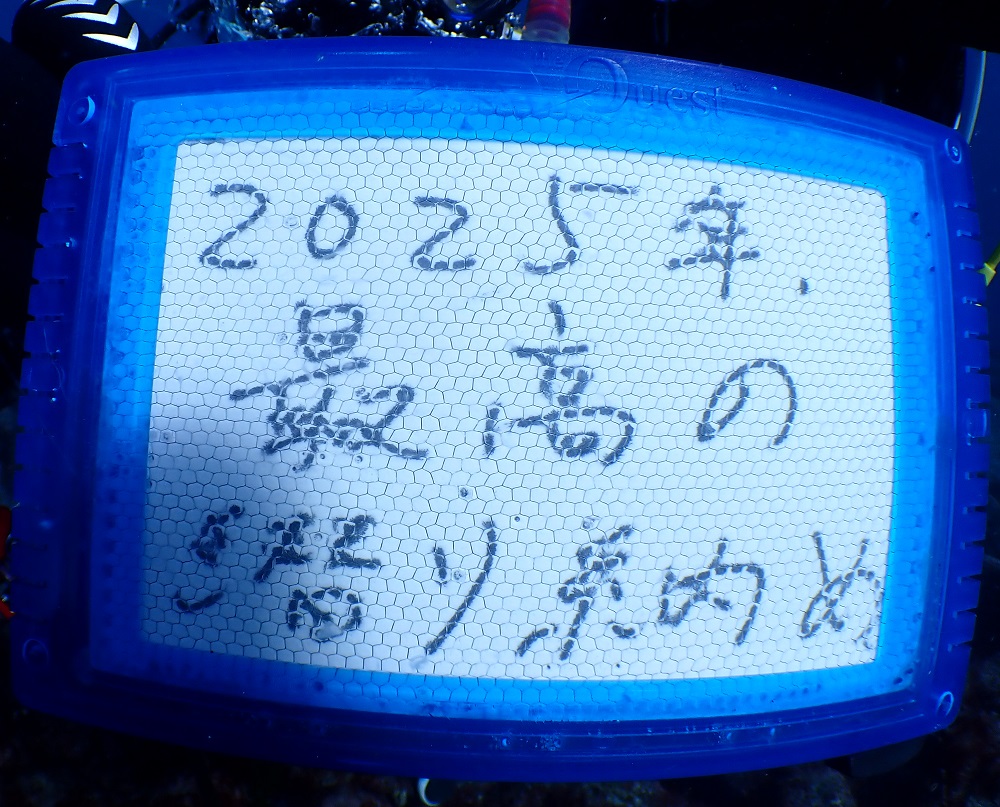 Quest
2025年.
最高の
潜り納め